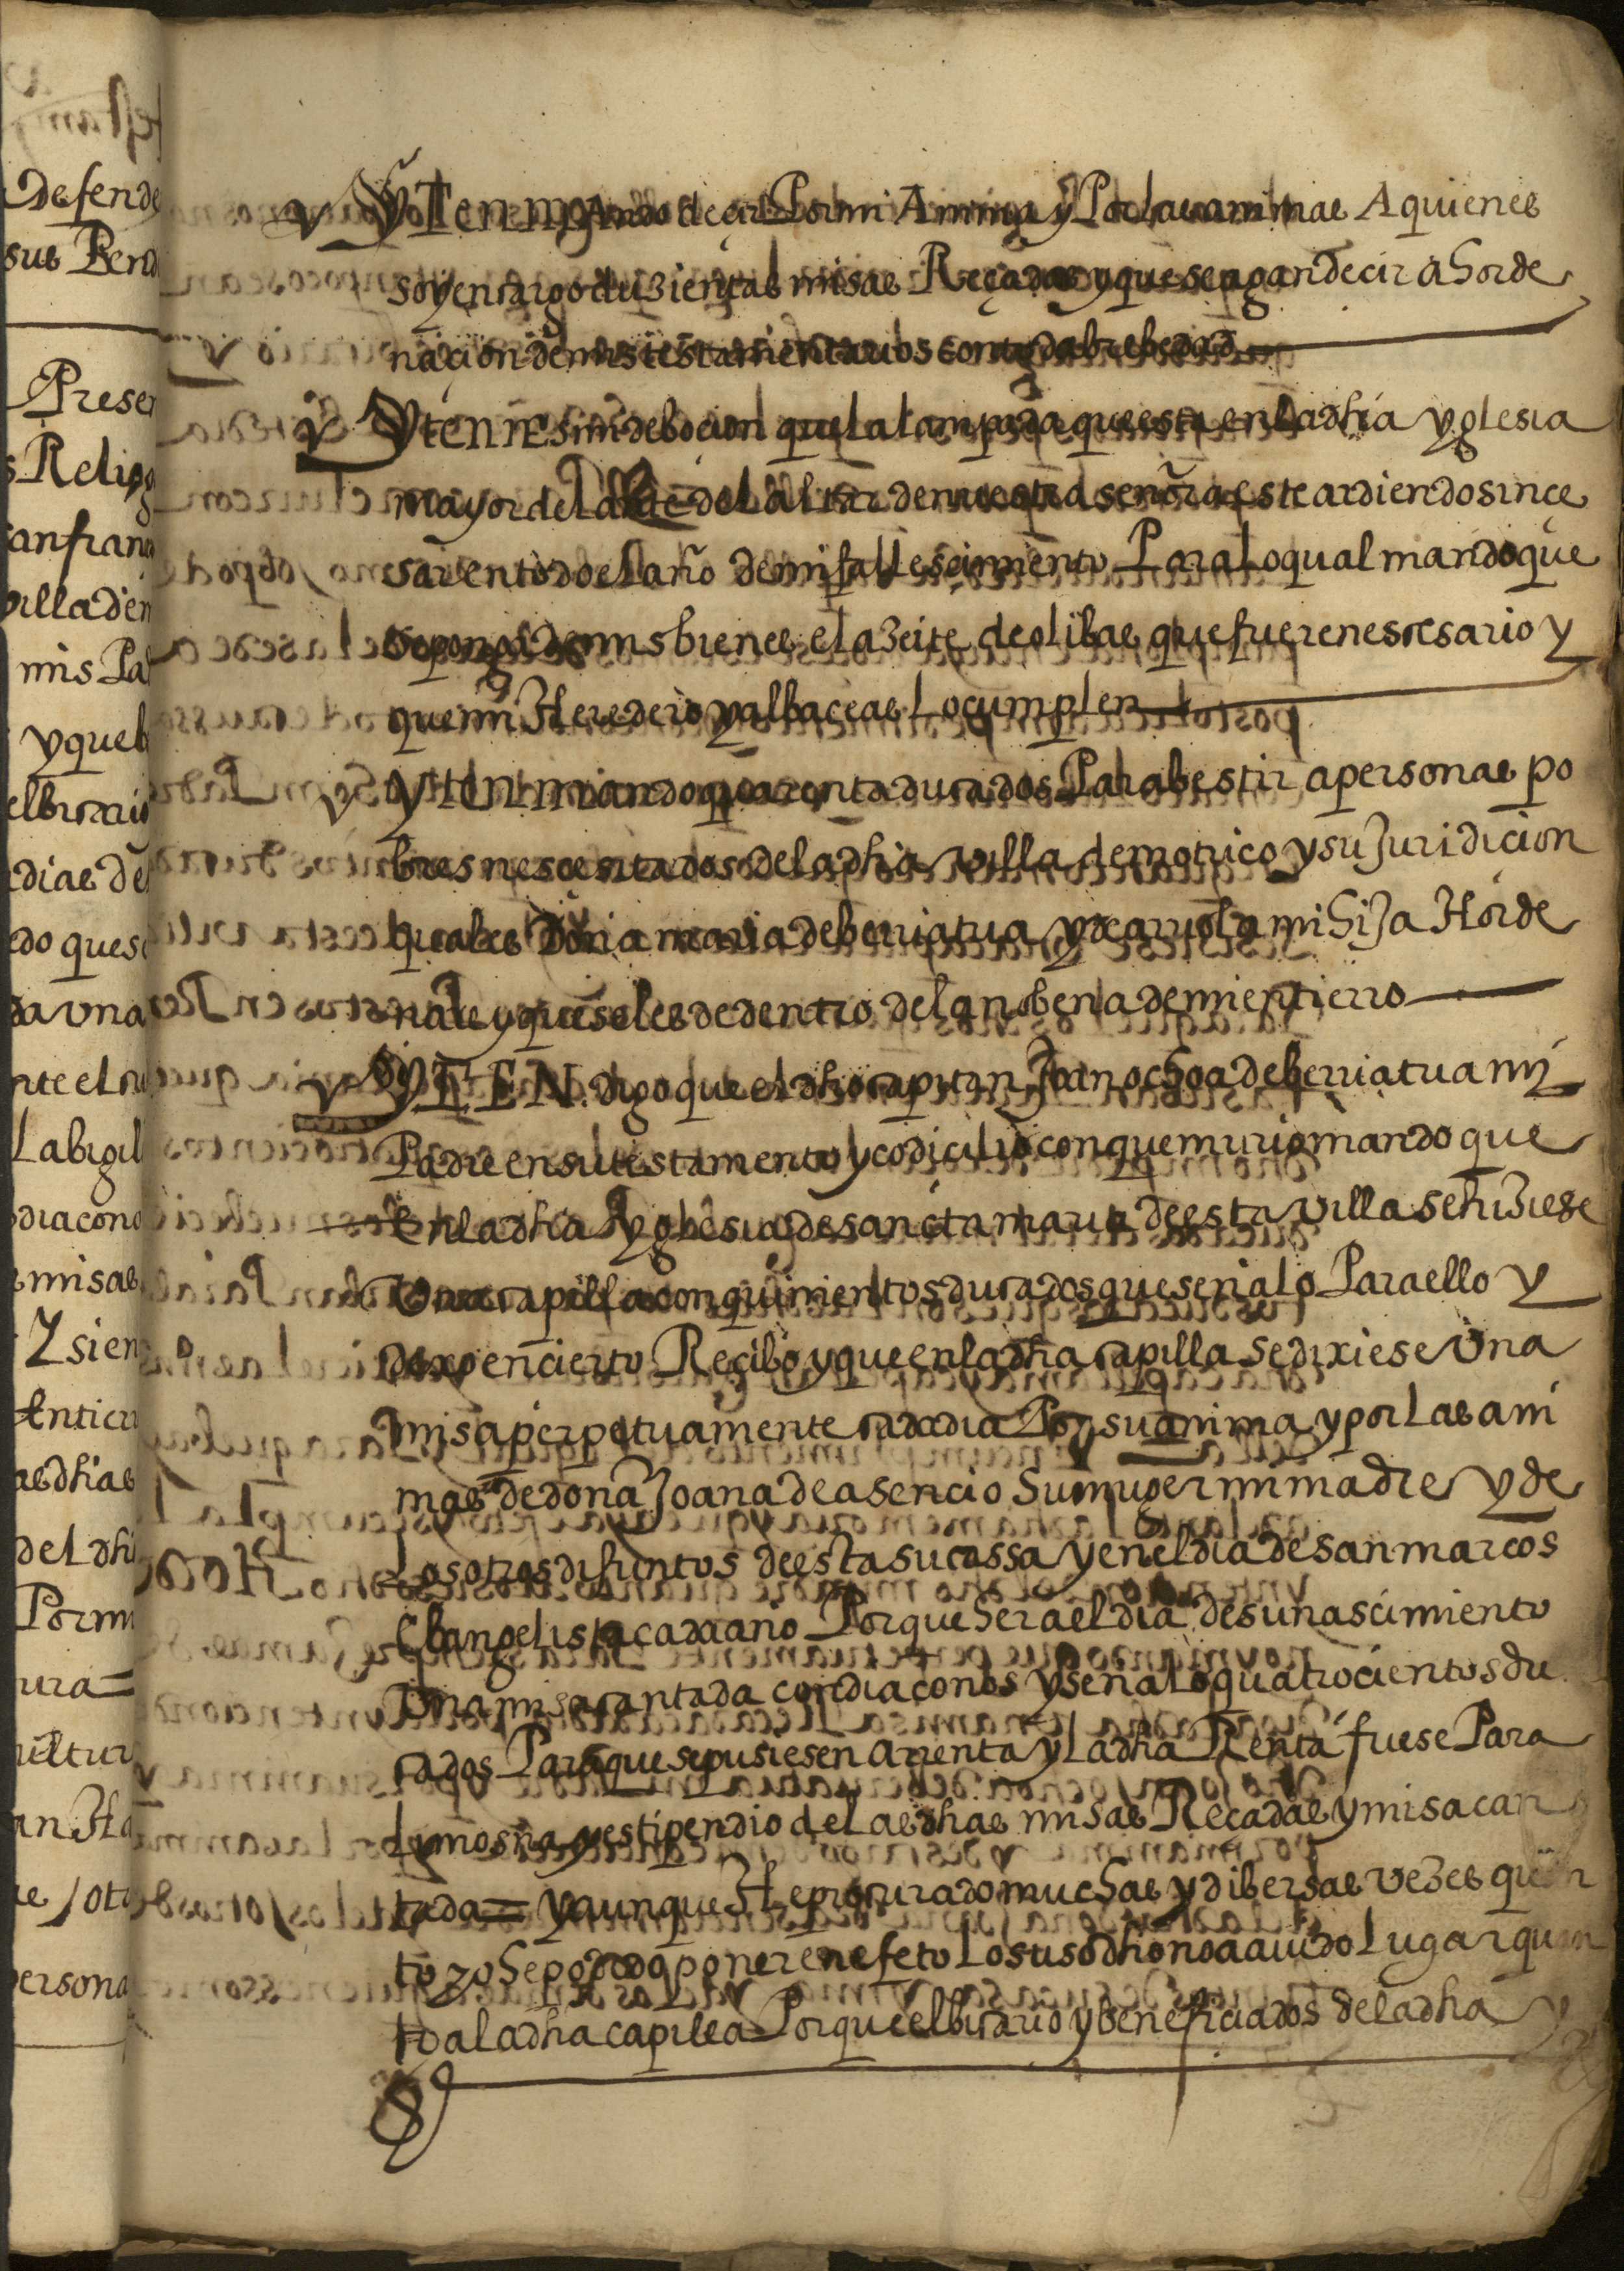 Yten mando decir Por mi Anima y Por las animas A quienes
soy en cargo duzientas misas Reçadas y que se agan decir a horde
naçion de mis testamentarios con toda brebedad
Yten es mi debocion que la lampara que esta en la dha yglesia
mayor delante del altar de nuestra señora este ardiendo sin ce
sar entodo el año de mi fallescimiento Para lo qual mando que
se ponga de mis bienes el azeite de olibas que fuere nescesario y
que mi Heredero y albaceas Lo cumplen
yten mando quarenta ducados Para bestir a personas po
bres nescesitados de la dha villa de motrico y su Juridicion
quales Doña maria de berriatua y arriola mi hiJa Horde
nare y que se les de dentro de la nobena de mi entierro
YTEN digo que el dho capitan Joan ochoa de berriatua mi
Padre en su testamento y codicilio con que murio mando que
En la dha Yglesia de sancta maria de esta villa se hiziese
Una capilla con quinientos ducados que señalo Para ello y
dexo en cierto Reçibo y que en la dha capilla se dixiese Una
misa perpetuamente cada dia Por su anima y por Las ani
mas de doña Joana de asencio Su muger mi madre y de
Los otros difuntos de esta su cassa y en el dia de san marcos
Ebangelista cada año Porque Hera el dia de su nascimiento
Una misa cantada con diaconos y señalo quatrocientos du
cados Para que se pusiesen a rrenta y La dha Renta fuese Para
Lymosna y estipendio de Las dhas misas Reçadas y misa can
tada = y aunque He procurado muchas y dibersas vezes
to zo Se podido poner en efeto Lo suso dho no a auido Lugar quan
to a la dha capilla Porque el bicario y beneficiados de la dha